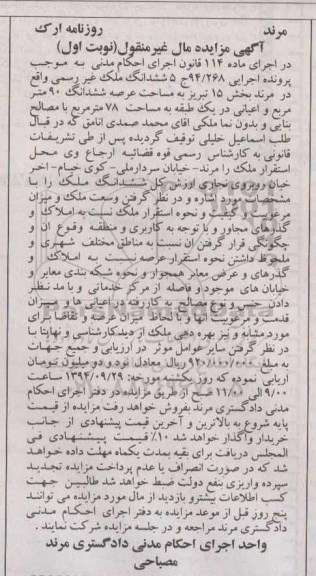 مرند روزنامه ارک
آگهی مزایده مال غیرمنقول(نوبت اول)
در اجرای ماده ۱۱۴ قانون اجرای احکام مدنی به موجب
پرونده اجرایی ۹۴/۲۶۸ج ۵ ششدانگ ملک غیر رسمی واقع
در مرند بخش ۱۵ تبریز به مساحت عرصه ششدانگ ۹۰ متر
مربع و اعیانی در یک طبقه به مساحت ۷۸ مترمربع با مصالح
بنایی و بدون نما ملکی اقای محمد صمدی اناقق که در قبال
طلب اسماعیل خلیلی توقیف گردیده پس از طی تشریفات
قانونی به کارشناس رسمی قوه قضائیه ارجاع وی محل
استقرار ملک را مرند-خیابان سردارملی-کوی خیام-اخر
خیان روبروی نجاری ارزش کل ششدانگ ملک را با
مشخصات مورد اشاره و در نظر گرفتن وسعت ملک و میزان
مرغوبیت و کیفیت و نحوه استقرار ملک نسبت به املاک و
گذرهای مجاور و با توجه به کاربری و منطقه وقوع ان و
چگونگی قرار گرفتن ان نسبت به مناطق مختلف شهری و
ملحوظ داشتن نحوه استقرار عرصه نسبت به املاک و
گذرهای و عرض معابر همجوار و نحوه شبکه بندی معابر و
خیابان های موجود و فاصله از مرکز خدماتی و با مد نظر
دادن جنس و نوع مصالح به کار رفته در اعیانی ها و میزان
قدمت و مرغوبیت انها و با لحاظ شرایط عرضه و تقاضا برای
مورد مشابه و نیز بهره دهی ملک از دید کارشناسی و نهایتا با
در نظر گرفتن سایر عوامل موثر در ارزیابی و جمیع جهات
به مبلغ ۹۲۰/۰۰۰/۰۰۰ ریال معادل نود و دو میلیون تومان
اریابی نموده که روز یکشنبه مورخه: ۱۳۹۴/۰۹/۲۹ ساعت
۹/۰۰ الی ۱۱/۰۰ صبح از طریق مزایده در دفتر اجرای احکام
مدنی دادگستری مرند بفروش خواهد رفت مزایده از قیمت
پایه شروع به بالاترین و آخرین قیمت پیشنهادی از جانب
خریدار واگذار خواهد شد ۱۰٪ قیمت پیشنهادی فی
المجلس دریافت برای بقیه بمدت یکماه مهلت داده خواهد
شد که در صورت انصراف یا عدم پرداخت مزایده تجدید
سپرده واریزی بنفع دولت ضبط خواهد شد طالبین جهت
کسب اطلاعات بیشترو بازدید از مال مورد مزایده می توانند
پنج روز قبل از موعد مزایده به دفتر اجرای احکام مدنی
دادگستری مرند مراجعه و در جلسه مزایده شرکت نمایند .
واحد اجرای احکام مدنی دادگستری مرند
مصباحی